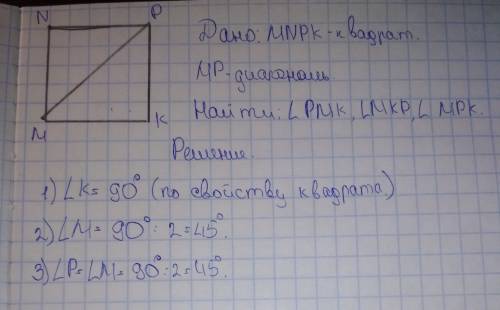 N P
Дано: MNPK - квадрат.
MP - диагональ
Найти: ∠PMK, ∠MKP, ∠ MPK.
M K
Решение.
1) ∠K = 90° (по свойству квадрата)
2) ∠M = 90° : 2 = 45°.
3) ∠P = ∠M = 90° : 2 = 45°.